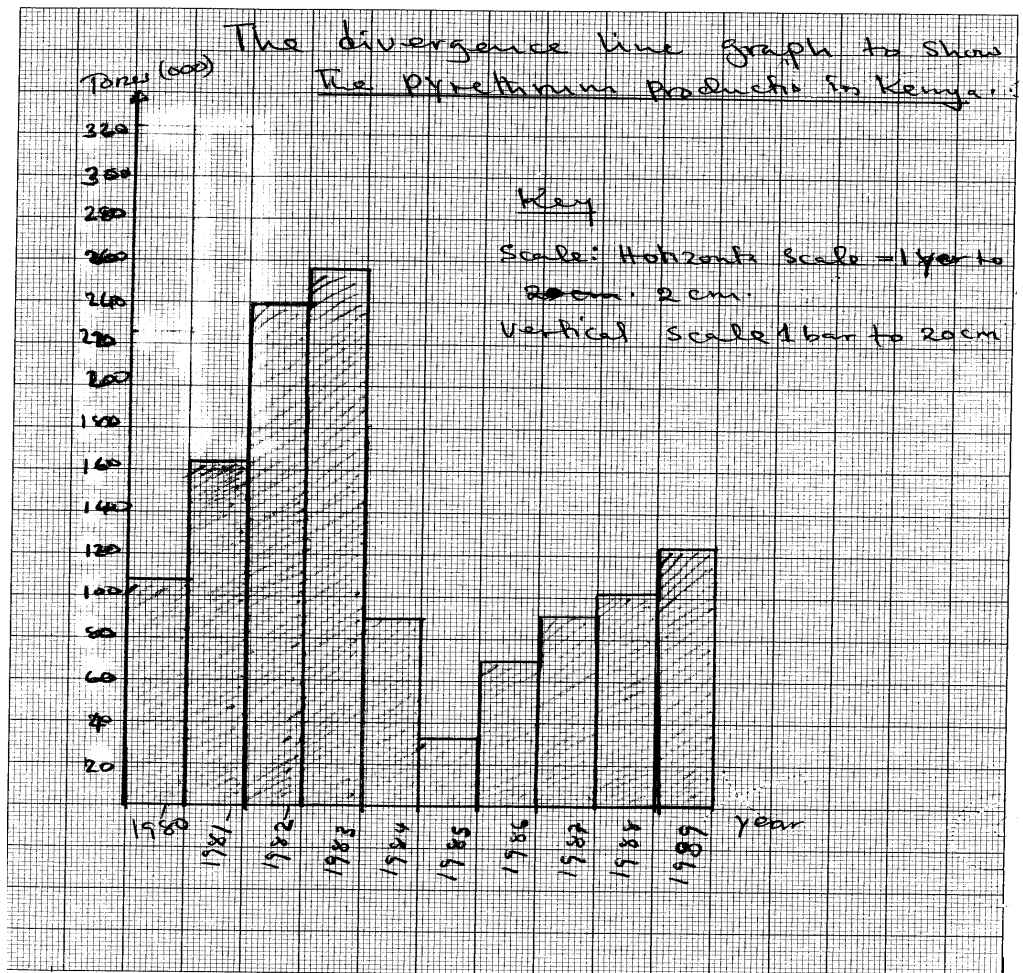 The divergence line graph to show
the pyrethrum productio in Kenya.
Tones (000)
320
300
280
260
240
220
200
180
160
140
120
100
80
60
40
20
Key
Scale: Horizontl Scale - 1 yer to
2 cm.
Vertical Scale 1 bar to 20 cm
1980
1981
1982
1983
1984
1985
1986
1987
1988
1989
year